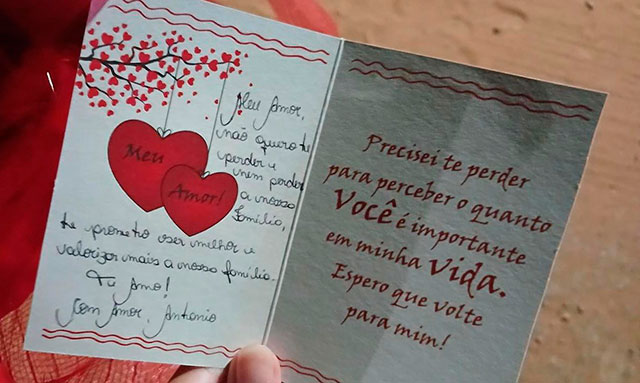 Meu
Amor!
Meu Amor,
não quero te
perder e
nem perder
a nossa
família,
te prometo ser melhor e
valorizar mais a nossa família.
Te Amo!
Com Amor, Antonio
Precisei te perder
para perceber o quanto
Você é importante
em minha vida.
Espero que volte
para mim!